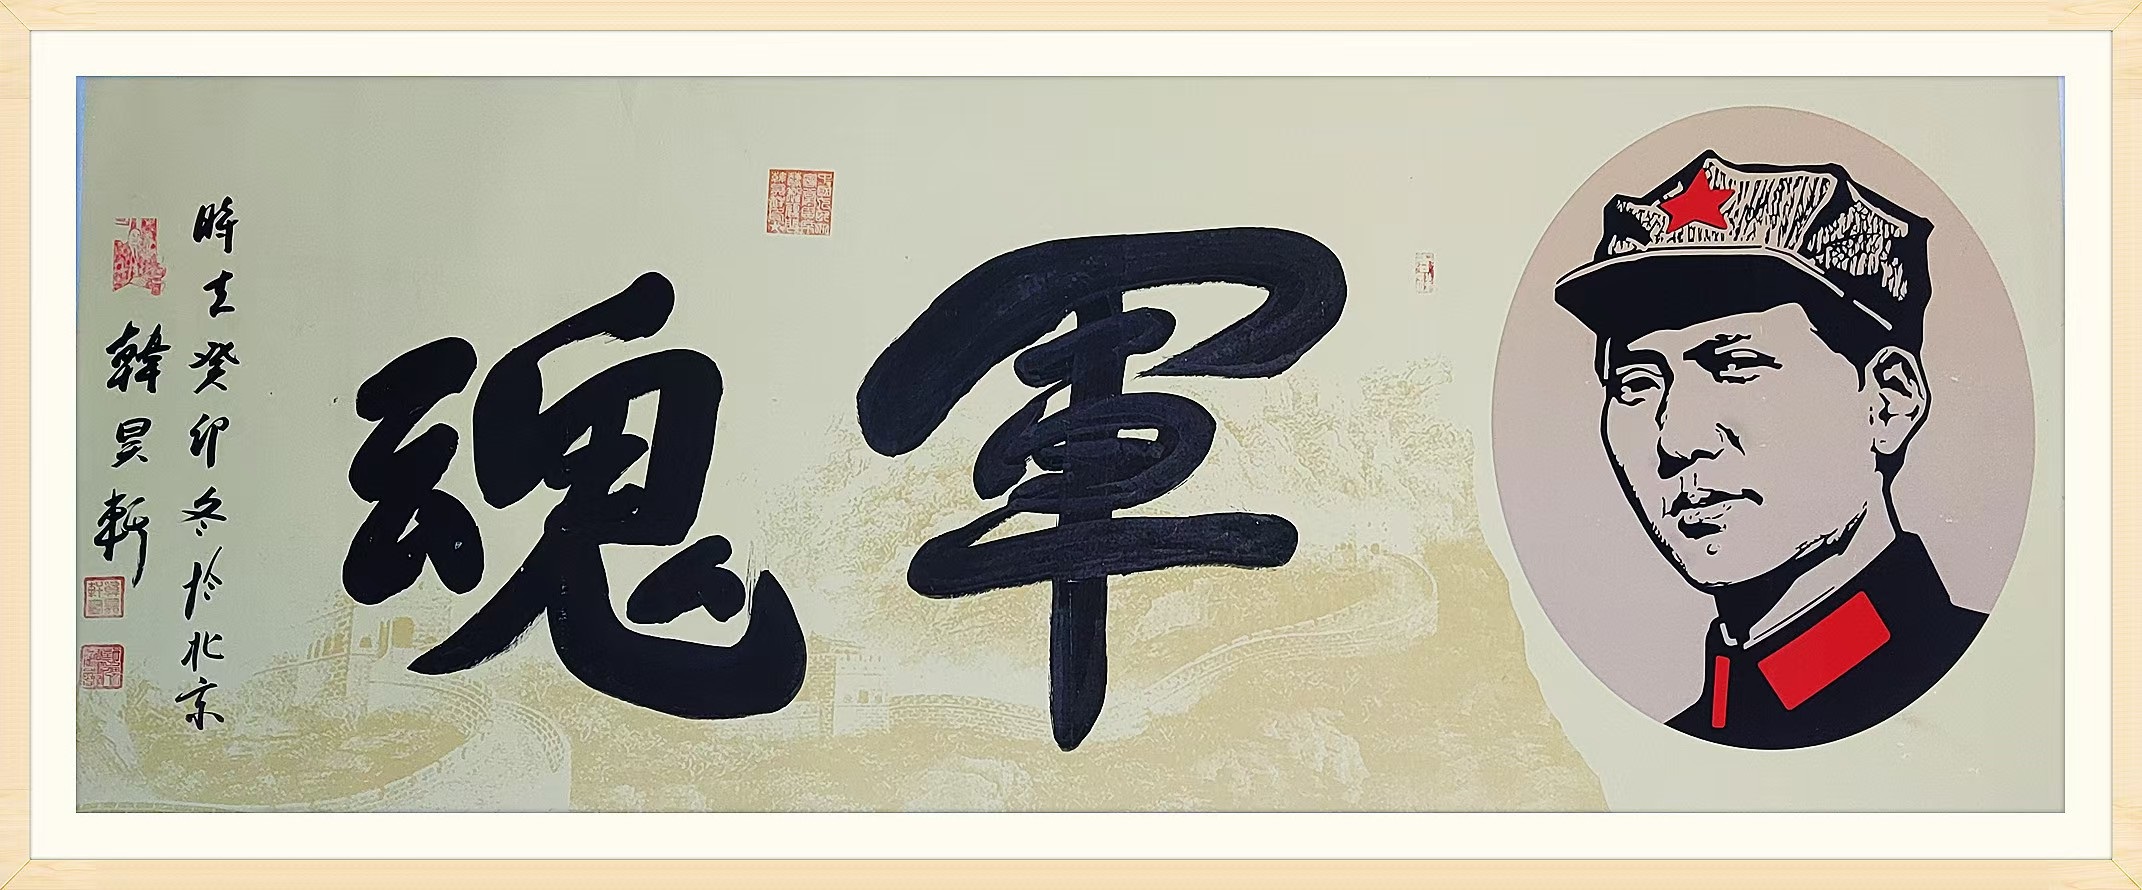 軍魂
時在癸卯冬於北京
韓昊軒